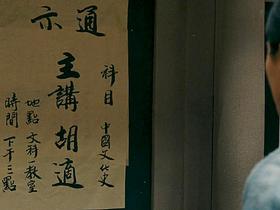 通示
科目 中國文化史
主講胡適
地點 文科一教室
時間 下午三點